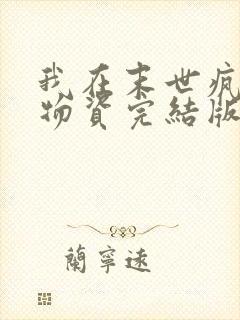 我在末世疯
物资完結版
蘭寧遠